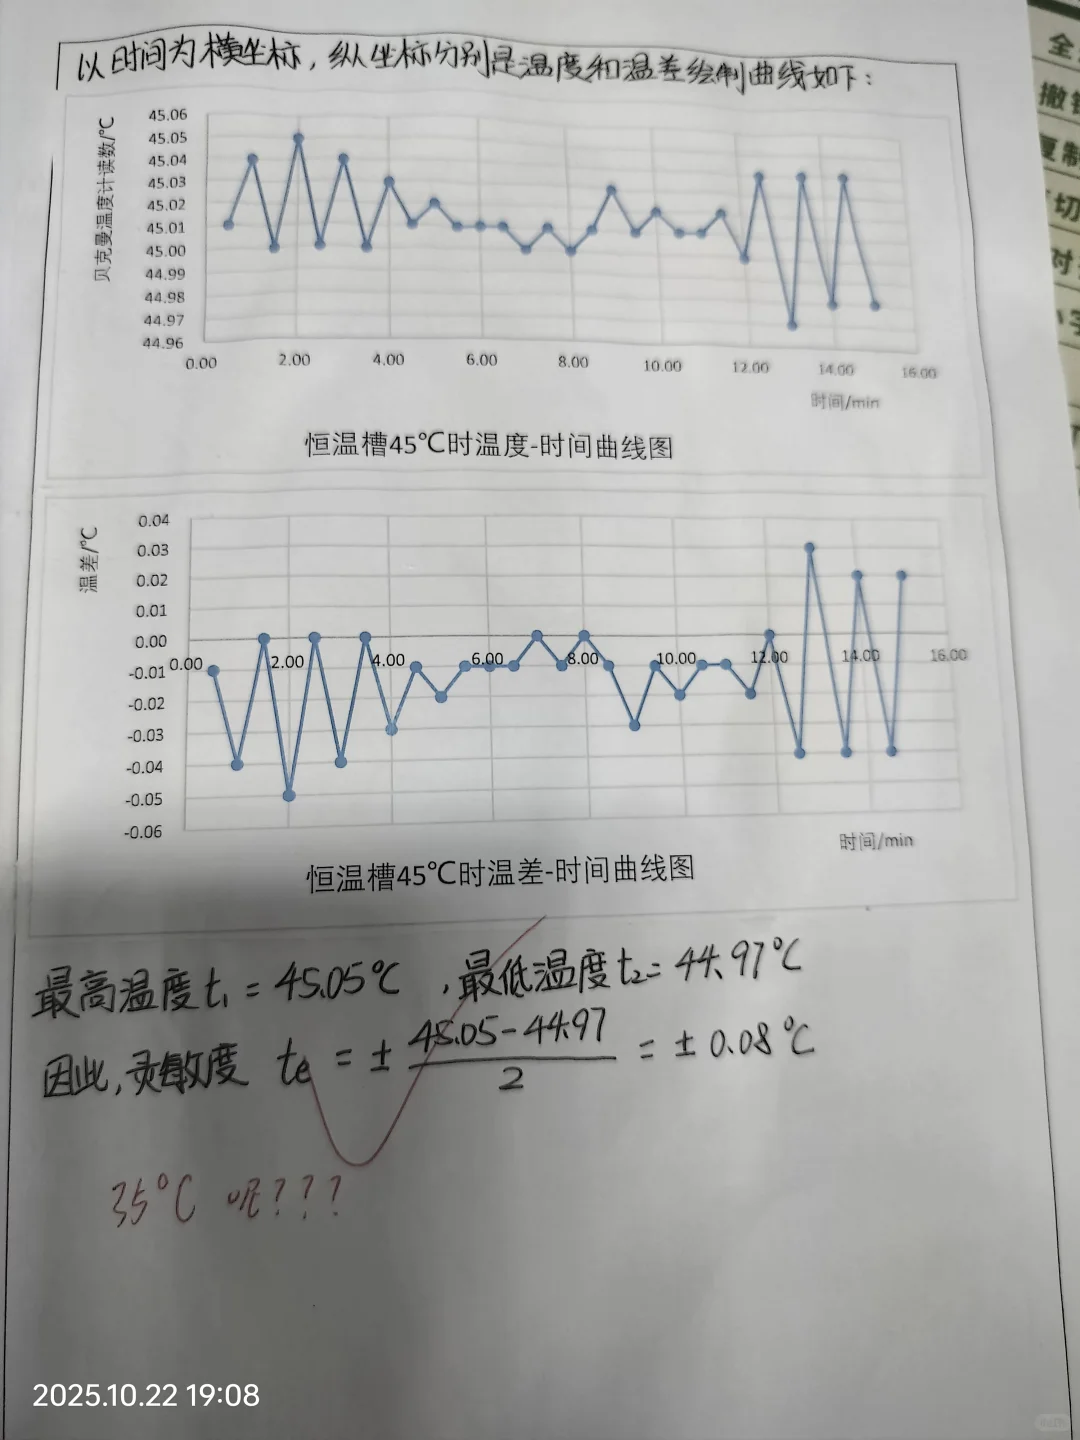 以时间为横坐标，纵坐标分别是温度和温差绘制曲线如下：
贝克曼温度计读数/℃
45.06
45.05
45.04
45.03
45.02
45.01
45.00
44.99
44.98
44.97
44.96
0.00 2.00 4.00 6.00 8.00 10.00 12.00 14.00 16.00
时间/min
恒温槽45℃时温度-时间曲线图
温差/℃
0.04
0.03
0.02
0.01
0.00
-0.01
-0.02
-0.03
-0.04
-0.05
-0.06
0.00 2.00 4.00 6.00 8.00 10.00 12.00 14.00 16.00
时间/min
恒温槽45℃时温差-时间曲线图
最高温度t₁ = 45.05℃ ，最低温度t₂= 44.97℃
因此，灵敏度 te = ± (45.05-44.97)/2 = ± 0.08℃
35℃ 呢？？？
全
撤
复制
切
对
2025.10.22 19:08